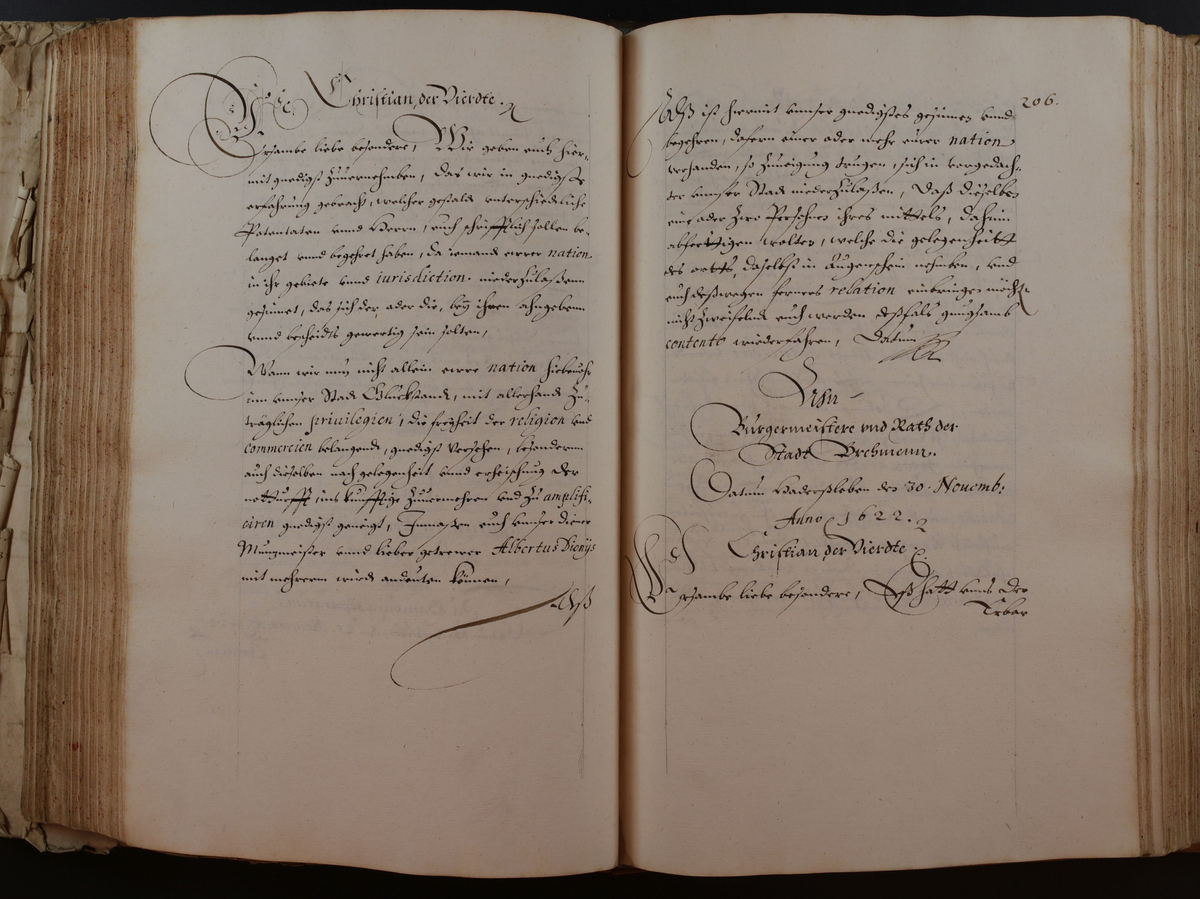 Christian der Vierdte.
Ersambe liebe besondere, Wir geben euch hier-
mit gnedigst zuuernehmben, das wir in gnedigste
erfahrung gebracht, welcher gestald unterschiedliche
Potentaten vnnd Herrn, euch schrifftlich sollen be-
langet vnnd begehret haben, da iemand ewrer nation
in ihr gebiete vnnd iurisdiction niederzulaßenn
gesinnet, das sich der oder die, bey ihnen ahngebenn
vnnd bescheidts gewertig sein solten,
Wann wir nun nicht allein ewre nation hiebeuohr
inn vnser Stad Glückstadt, mit allerhandt zu-
träglichen priuilegien, die freyheit der religion vnd
commercien belangend, gnedigst versehen, besondernn
auch dieselben nach gelegenheit vnnd erheischung der
notturfft, ins künfftige zuuermehren vnd zu amplifi-
ciren gnedigst geneigt, Inmaßen euch vnser diener
Müntzmeister vnnd lieber getrewer Albertus Dionijs
mit mehrerm würde andeuten können,
Alß
206.
Alß ist hiermit vnnser gnedigstes gesinnen vnnd
begehren, dafern einer oder mehr eurer nation
vorhanden, so zuneigung trugen, sich in vorgedach-
ter vnnser Stad niederzulaßen, daß dieselben
eine oder zwo Persohnen ihres mittels, dahin
abfertigen wolten, welche die gelegenheitt
des ortts, daselbst in Augenschein nehmben, vnd
euch deßwegen fernere relation einbringen möchten
nicht zweifelnd euch werden deßfals gnugsamb
contento wiederfahren, Datum
Ahn
Bürgermeistere vnd Rath der
Stadt Brehmenn.
Datum Haderßleben den 30. Nouemb:
Anno 1622.
Christian der Vierdte
Ersambe liebe besondere, Eß hatt vnns der
Erbar